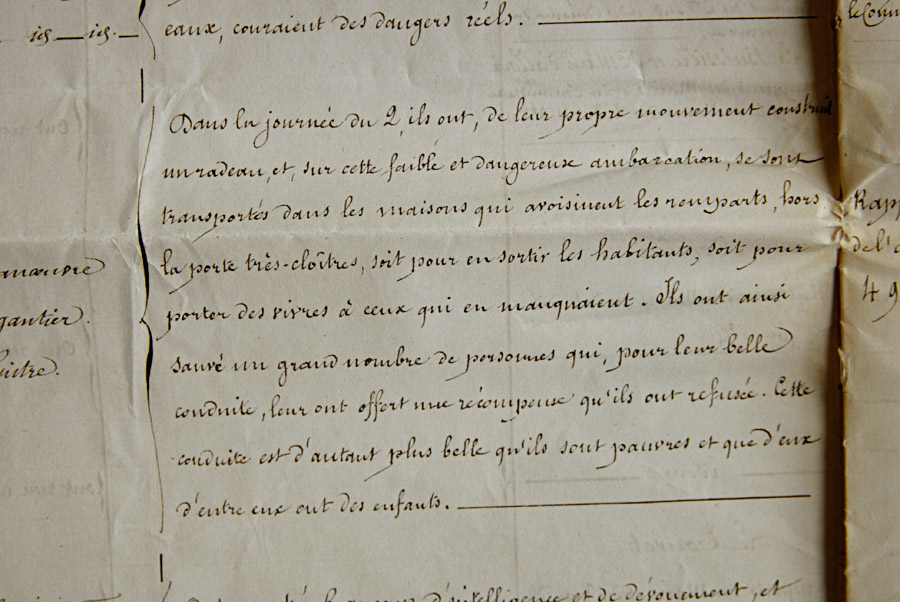 eaux, couraient des dangers réels.
id — id. —
Dans la journée du 2, ils ont, de leur propre mouvement construit
un radeau, et, sur cette faible et dangereuse ambarcation, se sont
transportés dans les maisons qui avoisinent les remparts, hors
la porte très-cloîtres, soit pour en sortir les habitants, soit pour
porter des vivres à ceux qui en manquaient. Ils ont ainsi
sauvé un grand nombre de personnes qui, pour leur belle
conduite, leur ont offert une récompense qu'ils ont refusée. Cette
conduite est d'autant plus belle qu'ils sont pauvres et que d'eux
d'entre eux ont des enfants.
d'intelligence et de dévouement, et
manœuvre
gantier.
Rapp
de l'
49